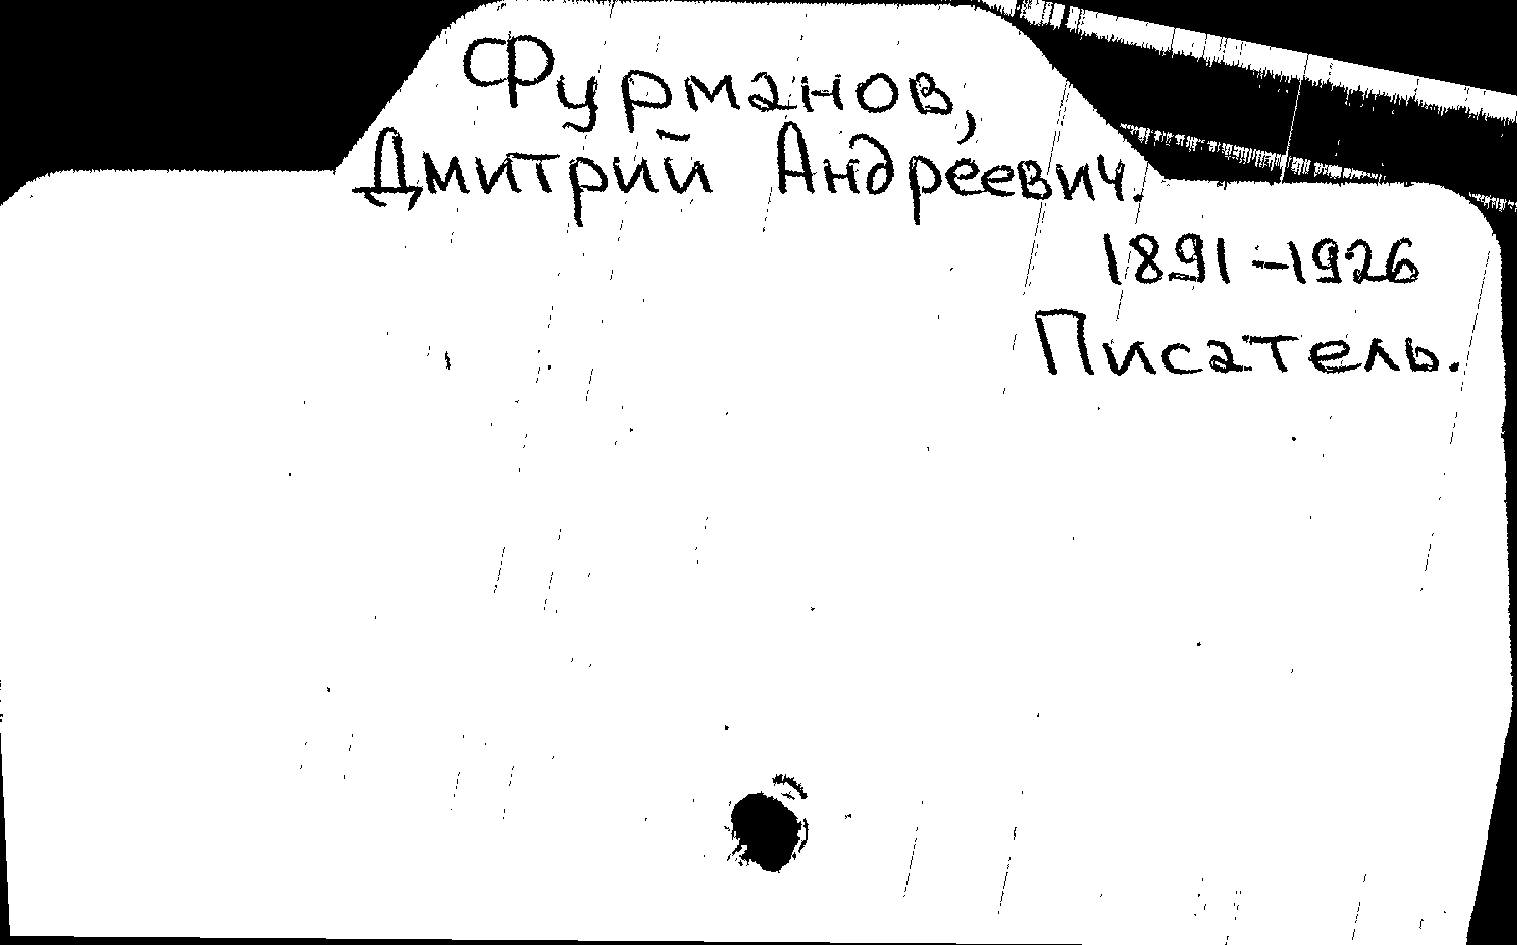 Фурманов,
Дмитрий Андреевич.
1891-1926
Писатель.